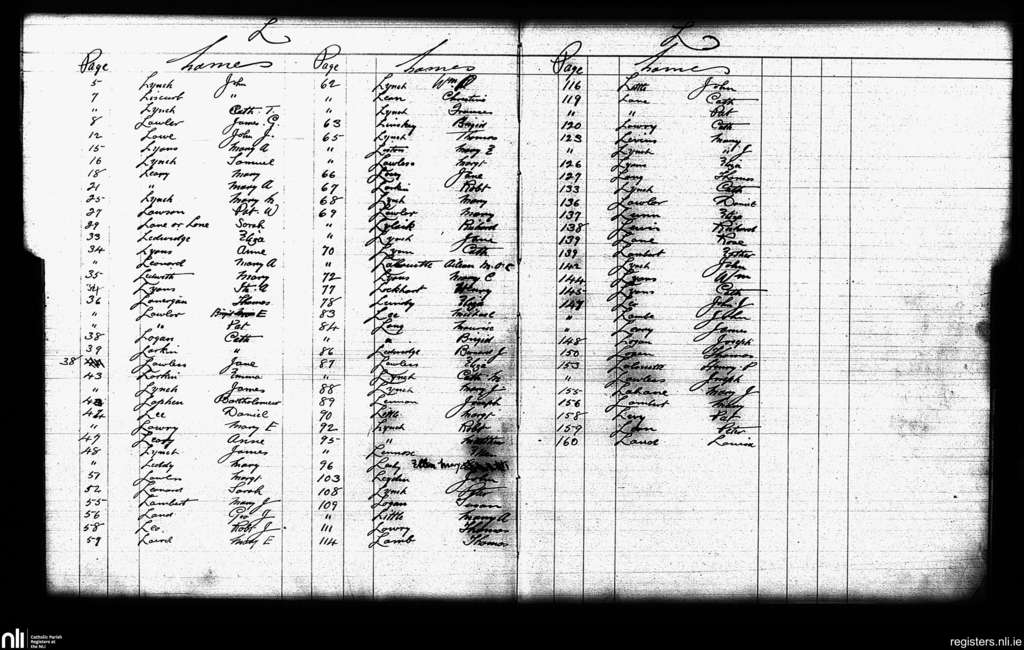 L
Page Names
5 Lynch Jhn
7 Liscurt "
" Lynch Cath T.
8 Lawler James G.
12 Lowe John J.
15 Lyons Mary A
16 Lynch Samuel
18 Leary Mary
21 " Mary A
25 Lynch Mary
27 Lawson Pat W
29 Lane or Lone Sarah
33 Ledwidge Eliza
34 Lyons Anne
" Leonard Mary A
35 Mary
Lyons
36 Lonergan Thomas
" Lawlor E
" " Pat
38 Logan Cath
39 Larkin "
38 Lawless Jane
43 Larkin Emma
" Lynch James
Laphen Bartholomew
Lee Daniel
" Lowry Mary E
49 Leary Anne
48 Lynch James
" Leddy Mary
51 Lawless Margt
52 Sarah
55 Lambert Mary J
56 Land Geo J
58 Leo. Robt J
59 Laird Mary E
Page Names
62 Lynch Wm P
" Leon Christina
" Lynch Frances
63 Brigid
65 Lynch Thomas
" Mary E
" Lawless Margt
66 Jane
67 Larkin Robt
68 Lynch Mary
69 Lawlor Mary
" Richard
" Lynch Jane
70 Lynn Cath
" Aileen M.
72 Lyons Mary C
77 Lockhart Henry
78 Lundy Eliza
83 Lee Michael
84 Long Maurice
" " Brigid
86 Ledwidge Bernard J
87 Lawless Eliza
" Lynch Cath M
88 Lynch Mary J
89 Lennon Joseph
90 Little Margt
92 Lynch Robt
95 "
" Lennox
96 Ellen Mary
103 Leyden John
108 Lynch Peter
109 Logan Susan
" Little Mary A
111 Lowry Thomas
114 Lamb Thomas
L
Page Names
116 Little John
119 Lane Cath
" " Pat
120 Lowry Cath
123 Levins Mary
" Lynch " J
126 Lyons Eliza
127 Long Thomas
133 Lynch Cath
136 Lawlor Daniel
137 Lunn Eliza
138 Lewis Richard
139 Lane Rose
139 Lambert Esther
142 Lynch John
144 Lyons Wm
145 Lyons Cath
147 Leo John J
" Lambe John
" Leary James
148 Logan Joseph
150 Logan Thomas
153 Henry P
" Lawless Joseph
155 Lehane Mary J
156 Lambert Mary
158 Levy Pat
159 Peter
160 Laud Louisa
nli Catholic Parish
Registers at
the NLI
registers.nli.ie